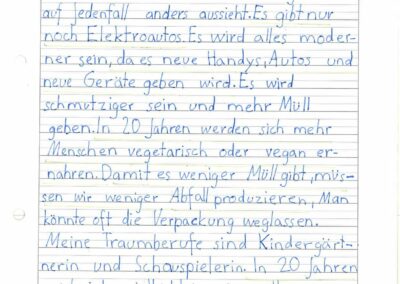 auf jedenfall anders aussieht.Es gibt nur
noch Elektroautos.Es wird alles moder-
ner sein, da es neue Handys, Autos und
neue Geräte geben wird.Es wird
schmutziger sein und mehr Müll
geben.In 20 Jahren werden sich mehr
Menschen vegetarisch oder vegan er-
nähren.Damit es weniger Müll gibt, müs-
sen wir weniger Abfall produzieren, Man
könnte oft die Verpackung weglassen.
Meine Traumberufe sind Kindergärt-
nerin und Schauspielerin. In 20 Jahren